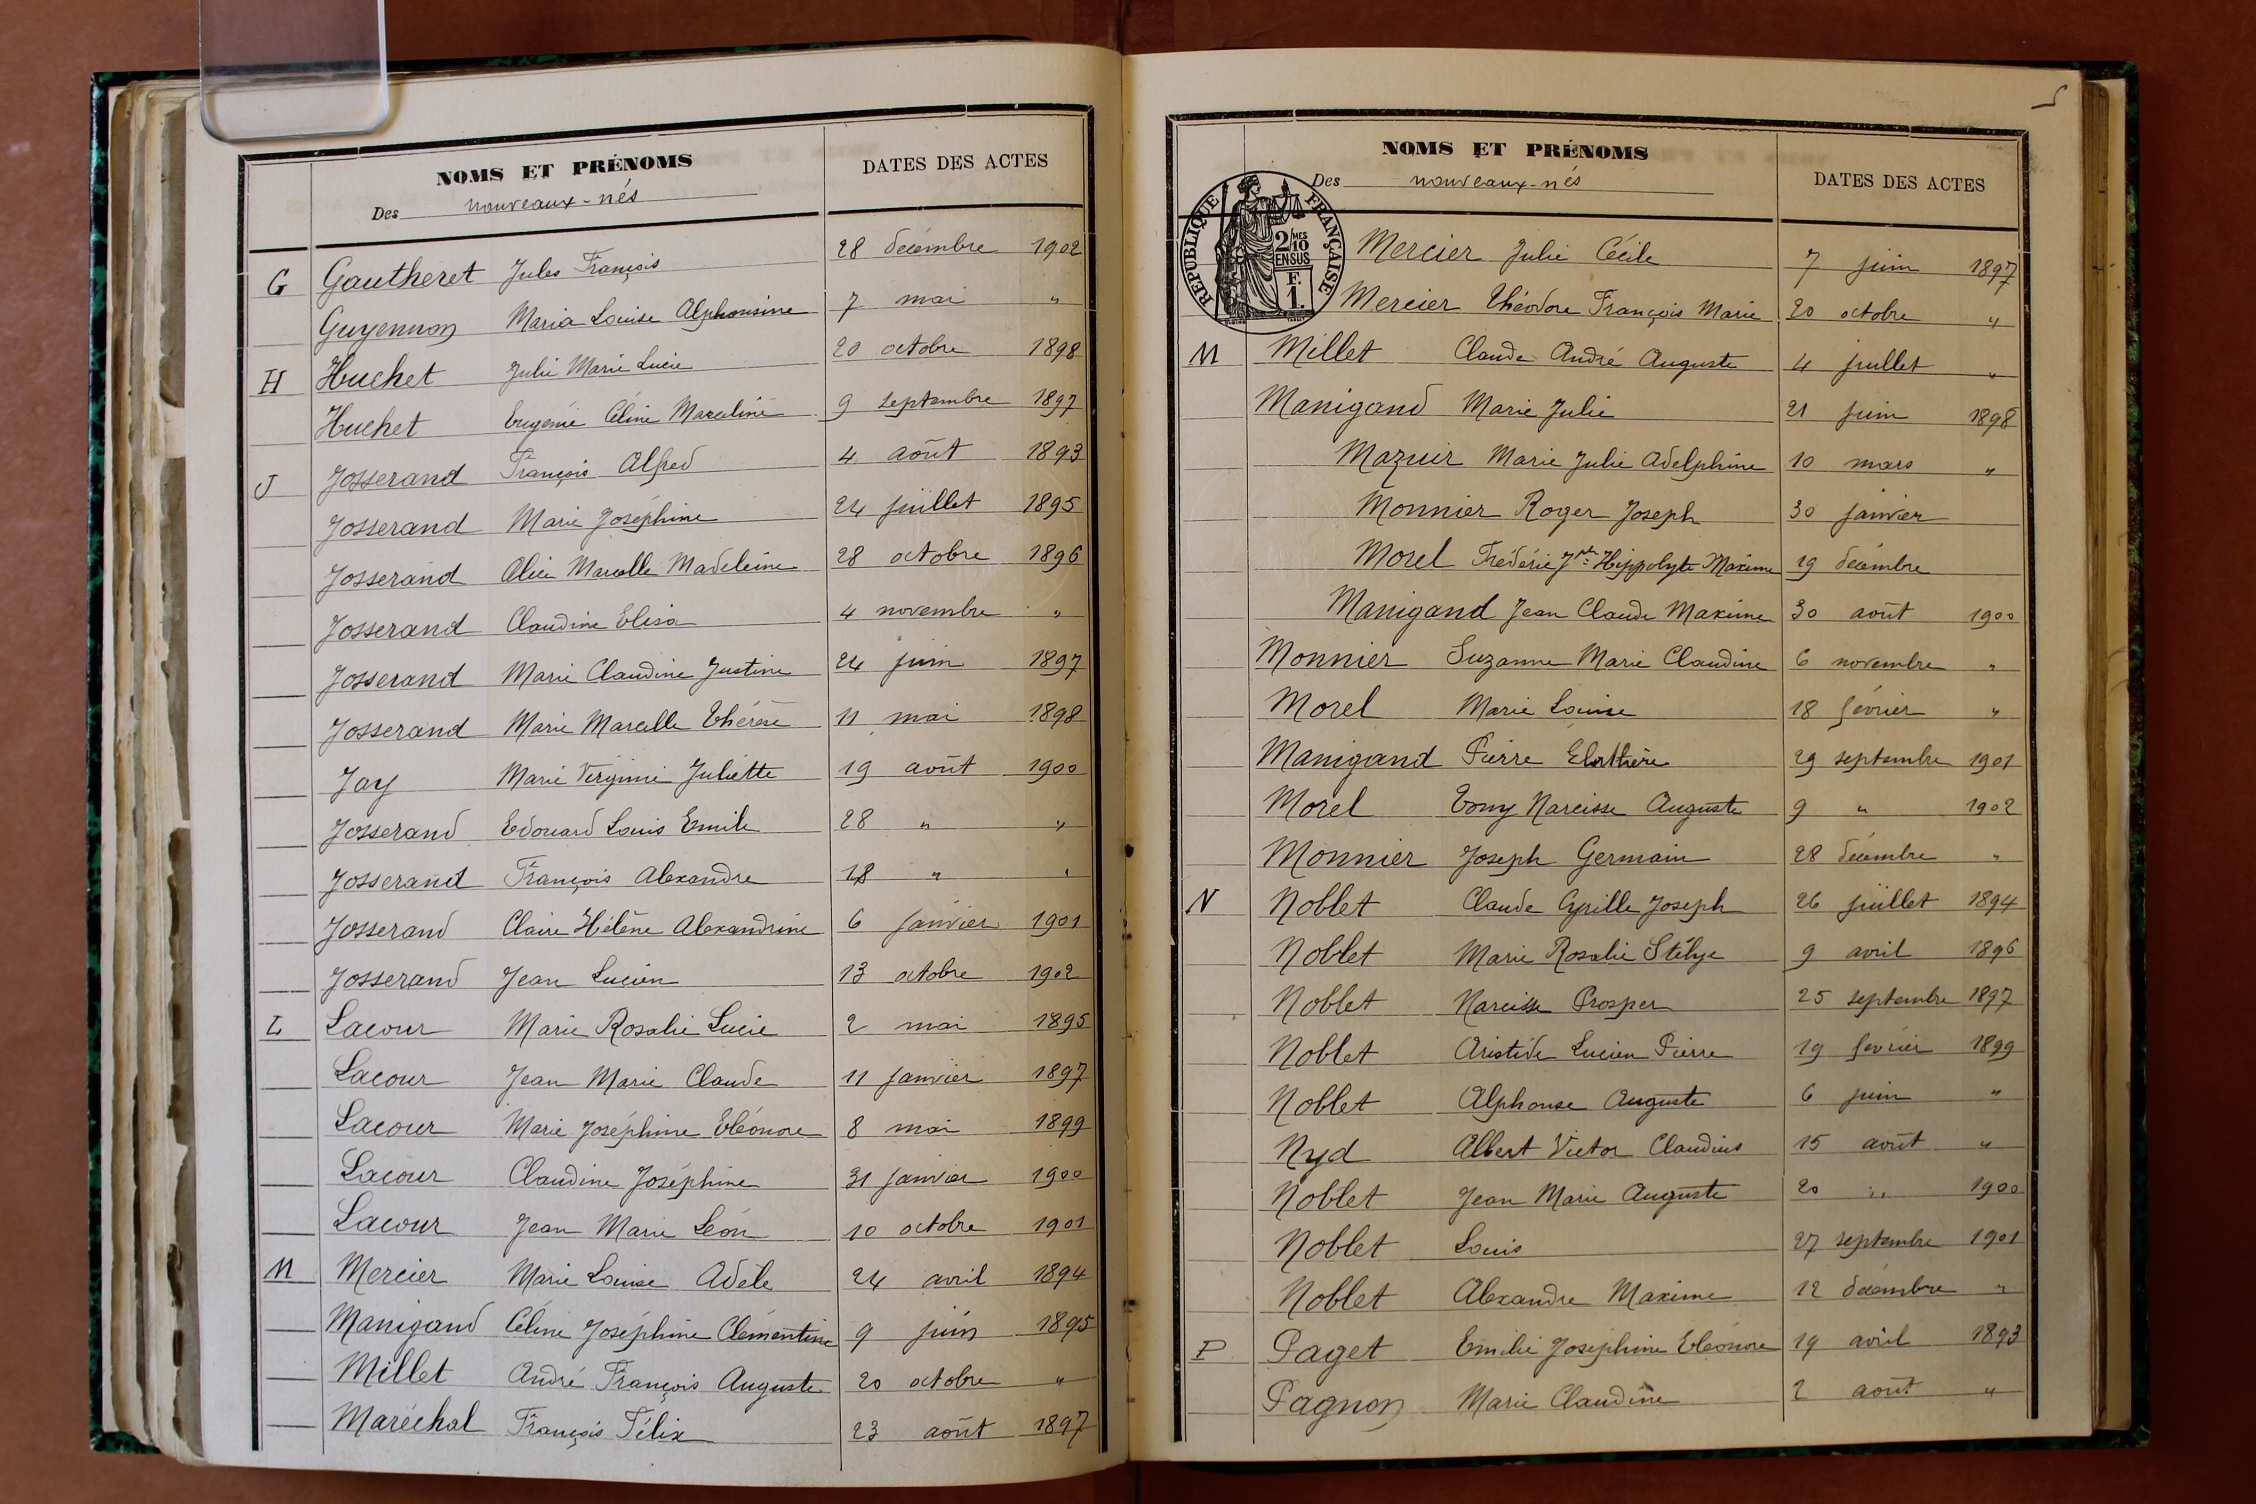 NOMS ET PRÉNOMS
DATES DES ACTES
Des nouveaux-nés
G Gautheret Jules François 28 décembre 1902
Guyennon Maria Louise Alphonsine 7 mai "
H Huchet Julie Marie Lucie 20 octobre 1898
Huchet Eugénie Céline Marceline 9 septembre 1897
J Josserand François Alfred 4 août 1893
Josserand Marie Joséphine 24 juillet 1895
Josserand Alice Marcelle Madeleine 28 octobre 1896
Josserand Claudine Elisa 4 novembre "
Josserand Marie Claudine Justine 24 juin 1897
Josserand Marie Marcelle Thérèse 11 mai 1898
Jay Marie Virginie Juliette 19 août 1900
Josserand Edouard Louis Emile 28 " "
Josserand François Alexandre 18 " "
Josserand Claire Hélène Alexandrine 6 janvier 1901
Josserand Jean Lucien 13 octobre 1902
L Lacour Marie Rosalie Lucie 2 mai 1895
Lacour Jean Marie Claude 11 janvier 1897
Lacour Marie Joséphine Eléonore 8 mai 1899
Lacour Claudine Joséphine 31 janvier 1900
Lacour Jean Marie Léon 10 octobre 1901
M Mercier Marie Louise Adèle 24 avril 1894
Manigand Céline Joséphine Clémentine 9 juin 1895
Millet André François Auguste 20 octobre "
Maréchal François Félix 23 août 1897
NOMS ET PRÉNOMS
DATES DES ACTES
Des nouveaux-nés
RÉPUBLIQUE FRANÇAISE
2/10 MES
EN SUS
F.
1.
Mercier Julie Cécile 7 juin 1897
Mercier Théodore François Marie 20 octobre "
M Millet Claude André Auguste 4 juillet "
Manigand Marie Julie 21 juin 1898
Mazuir Marie Julie Adelphine 10 mars "
Monnier Roger Joseph 30 janvier
Morel Frédéric Jph Hippolyte Maxime 19 décembre
Manigand Jean Claude Maxime 30 août 1900
Monnier Suzanne Marie Claudine 6 novembre "
Morel Marie Louise 18 février "
Manigand Pierre 29 septembre 1901
Morel Tony Narcisse Auguste 9 " 1902
Monnier Joseph Germain 28 décembre "
N Noblet Claude Cyrille Joseph 26 juillet 1894
Noblet Marie Rosalie 9 avril 1896
Noblet Narcisse Prosper 25 septembre 1897
Noblet Aristide Lucien Pierre 19 février 1899
Noblet Alphonse Auguste 6 juin "
Nyd Albert Victor Claudius 15 août "
Noblet Jean Marie Auguste 20 " 1900
Noblet Louis 27 septembre 1901
Noblet Alexandre Maxime 12 décembre "
P Paget Emilie Joséphine Eléonore 19 avril 1893
Pagnon Marie Claudine 2 août "